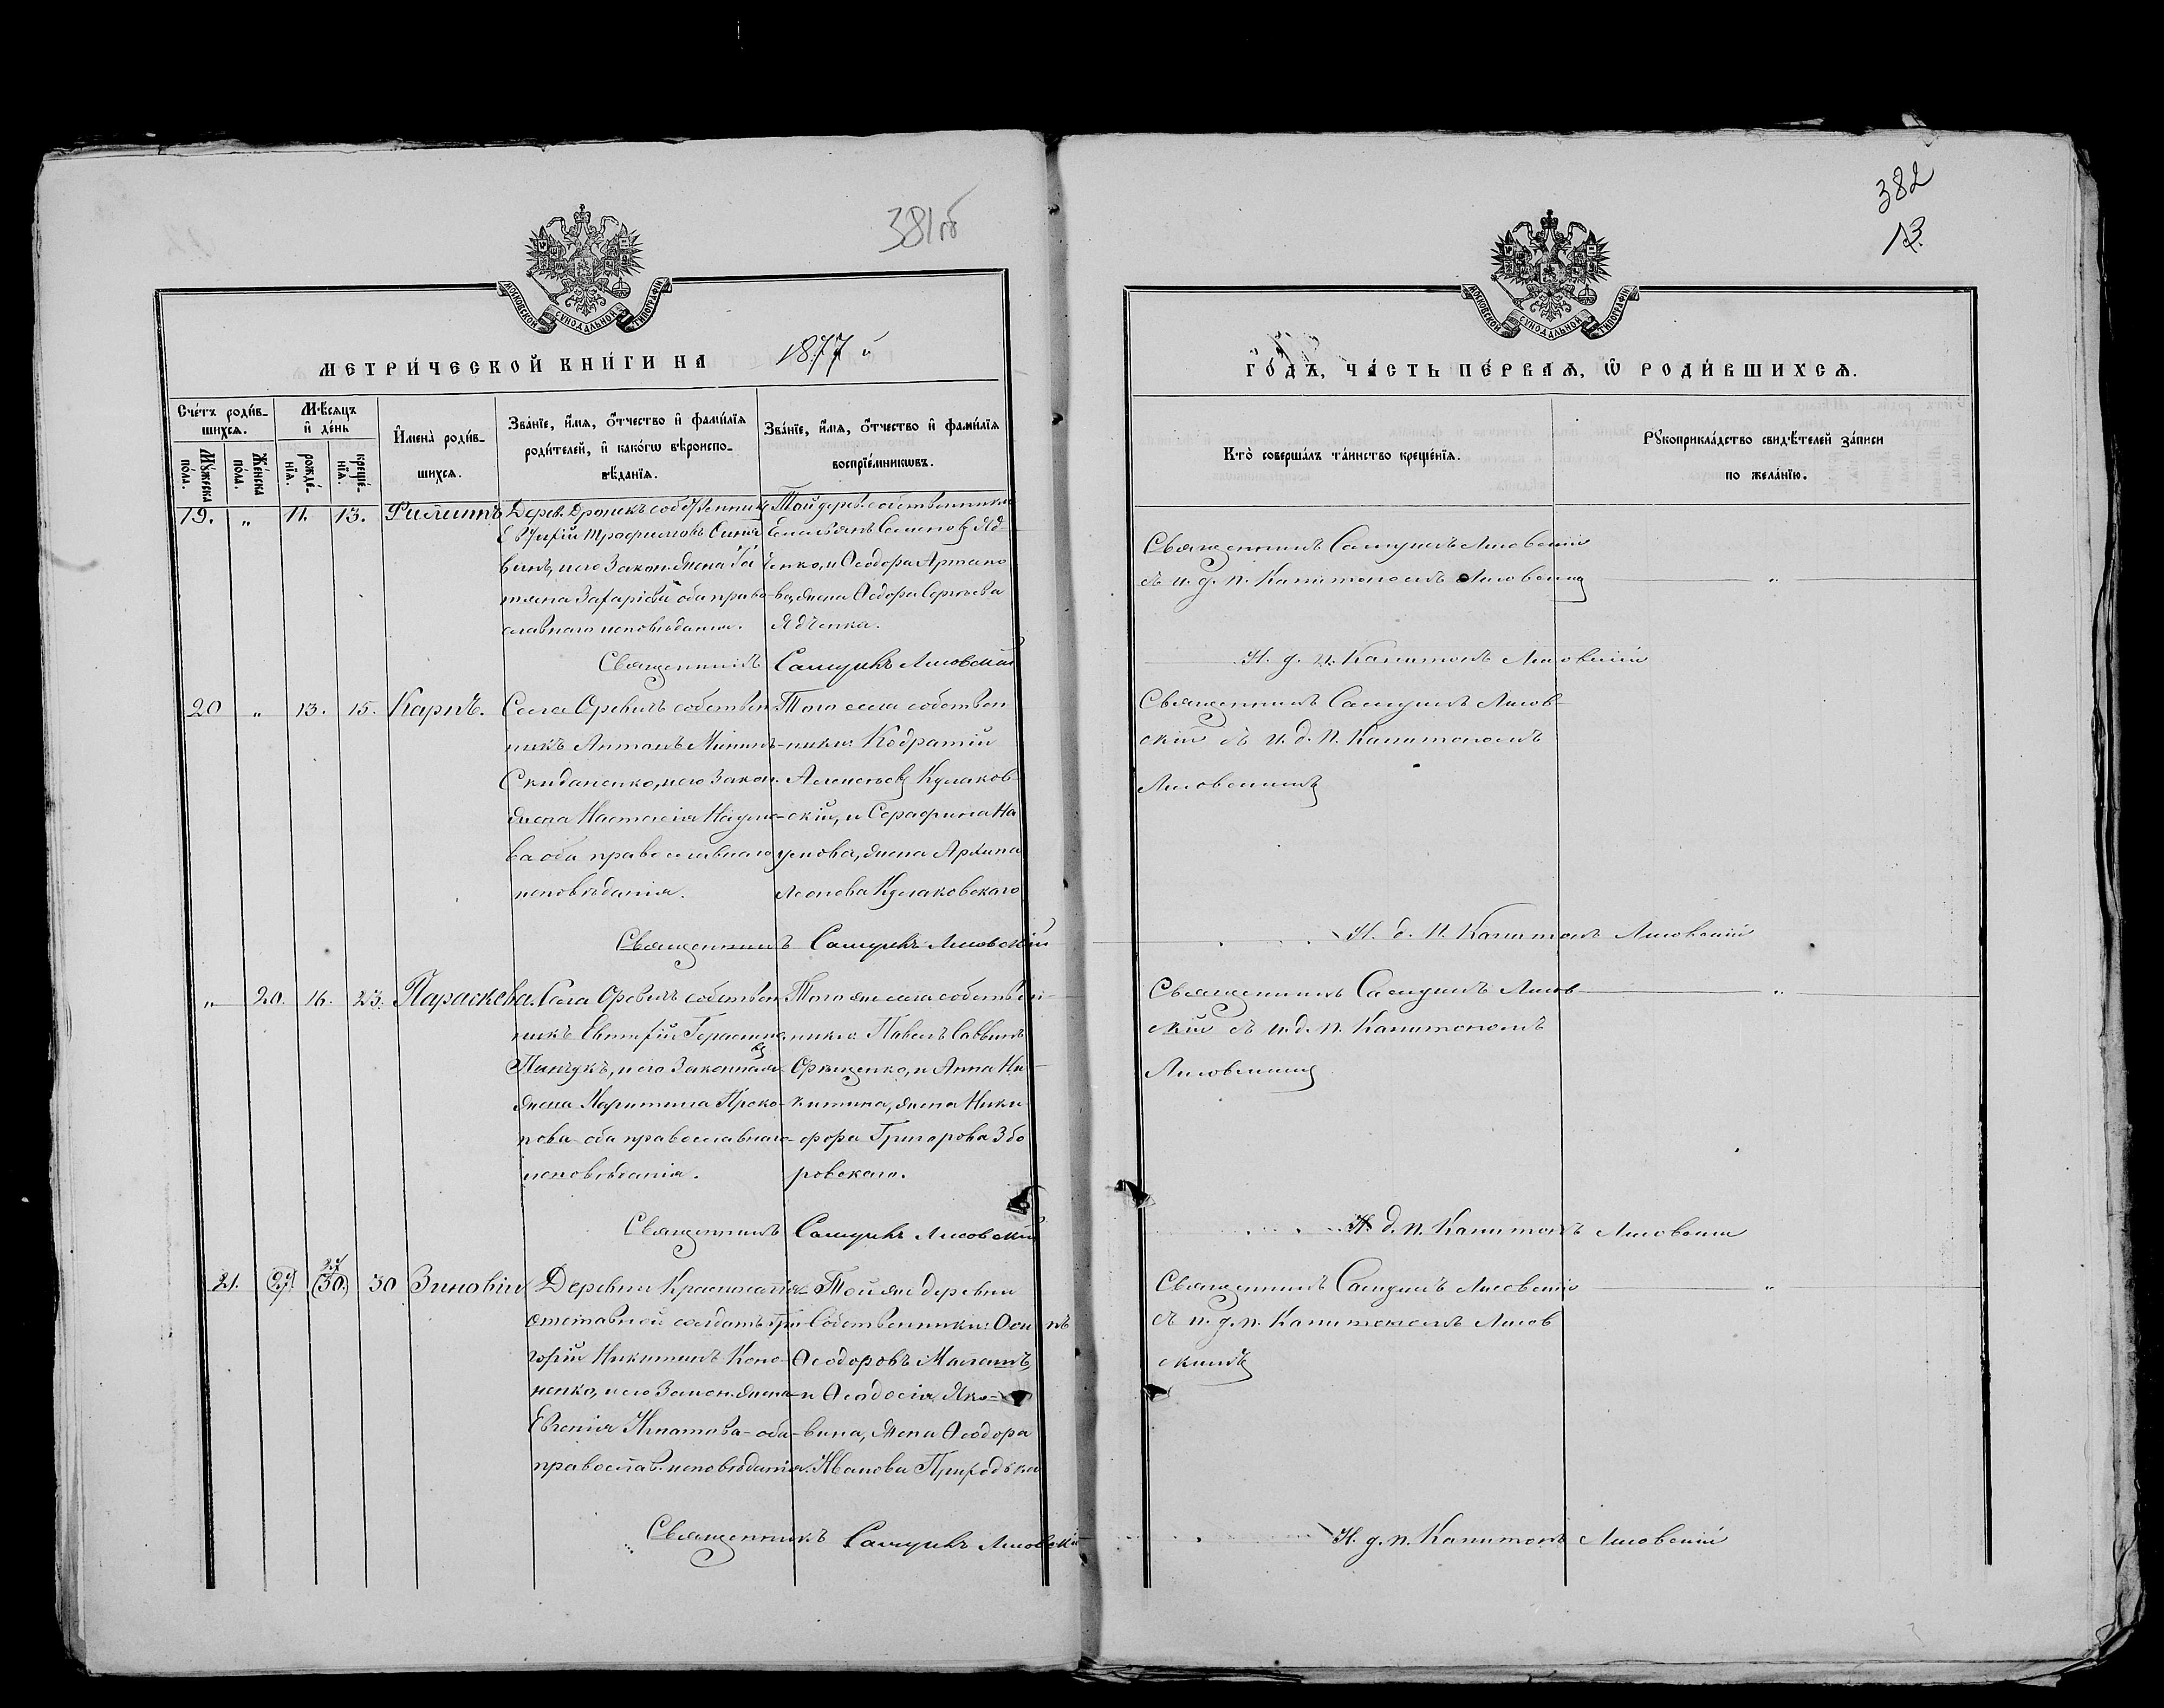 381 об
382
13.
МОСКОВСКОЙ СѴНОДАЛЬНОЙ ТИПОГРАФІИ
МЕТРИ́ЧЕСКОЙ КНИ́ГИ НА 1877 й
Сче́тъ роди́в-
шихсѧ.
Мꙋ́жеска по́ла.
Же́нска по́ла.
М҆ѣсѧцъ
и҆ де́нь
рожде́-
нїѧ.
креще́-
нїѧ.
И҆мена̀ роди́в-
шихсѧ.
Зва́нїе, и҆́мѧ, ѻ҆́тчество и҆ фами́лїѧ
роди́телей, и҆ како́гѡ вѣроиспо-
вѣ́данїѧ.
Зва́нїе, и҆́мѧ, ѻ҆́тчество и҆ фами́лїѧ
воспрїе́мникѡвъ.
19. „ 11. 13. Филиппъ
Дерев. Дроникъ собственникъ
Евфимій Трофимовъ
его Закон. жена
Захаріева оба право-
славнаго исповѣданія.
Той дерев. собственники
Емельянъ Семеновъ Яд-
ченко, и Ѳеодора
жена Ѳедора Сергѣева
Ядченка.
Священникъ Самуилъ Лисовскій
20 „ 13. 15. Карпъ.
Села Оревичъ собствен-
никъ Антонъ Мининъ
Скиданенко, и его Закон.
жена Настасія Наумо-
ва оба православнаго
исповѣданія.
Того села собствен
ники: Кодратій
Алексѣевъ Кулаков-
скій, и Серафима На
умова, жена Архипа
Леонова Кулаковскаго
Священникъ Самуилъ Лисовскій
„ 20. 16. 23. Параскева.
Села Оревичъ собствен
никъ Евтихій Герасимо
въ
Пинчукъ, и его Законная
жена Харитина Проко-
пова оба православнаго
исповѣданія.
Того же села собствен-
ники: Павелъ Саввинъ
Орѣщенко, и Анна Ни-
китина, жена Ники-
фора Григорова Збо
ровскаго.
Священникъ Самуилъ Лисовскій
27
21. 27. 30. 30 Зиновій
Деревни Красноселія
отставной солдатъ Гри-
горій Никитинъ Коно-
ненко, и его Закон. жена
Евгенія Игнатова оба
православ. исповѣданія.
Той же деревни
Собственники: Осипъ
Ѳеодоровъ
и Ѳеодосія Яко-
вина, жена Ѳеодора
Иванова Приходька
Священникъ Самуилъ Лисовскій
МОСКОВСКОЙ СѴНОДАЛЬНОЙ ТИПОГРАФІИ
ГО́ДЪ, ЧА́СТЬ ПЕ́РВАѦ, Ѡ҆ РОДИ́ВШИХСѦ.
Кто̀ соверша́лъ та́инство креще́нїѧ.
Рꙋкоприкла́дство свидѣ́телей за́писи
по жела́нїю.
Священникъ Самуилъ Лисовскій
съ и. д. п. Капитономъ Лисовскимъ „
И. д. п. Капитонъ Лисовскій
Священникъ Самуилъ Лисов-
скій съ и. д. п. Капитономъ
Лисовскимъ
И. д. п. Капитонъ Лисовскій
Священникъ Самуилъ Лисов „
скій съ и. д. п. Капитономъ
Лисовскимъ
И. д. п. Капитонъ Лисовскій
Священникъ Самуилъ Лисовскій „
съ и. д. п. Капитономъ Лисов
скимъ
И. д. п. Капитонъ Лисовскій